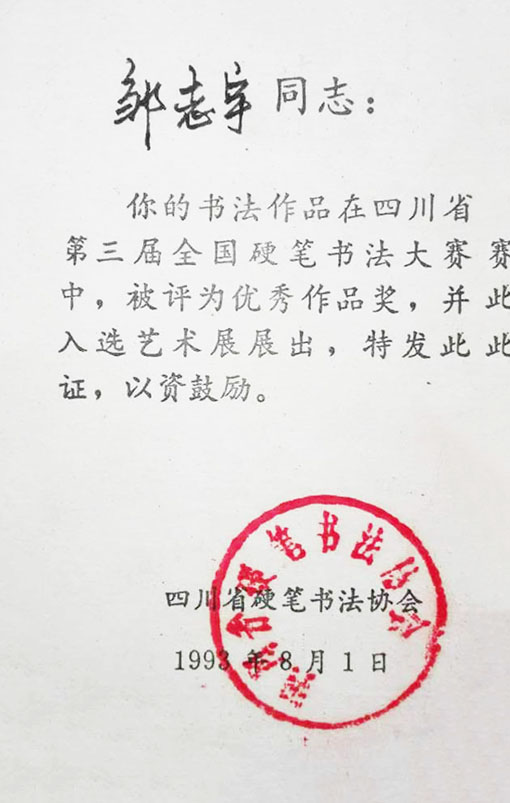 邹志宇同志：
你的书法作品在四川省
第三届全国硬笔书法大赛赛
中，被评为优秀作品奖，并此
入选艺术展展出，特发此此
证，以资鼓励。
四川省硬笔书法协会
1993年8月1日